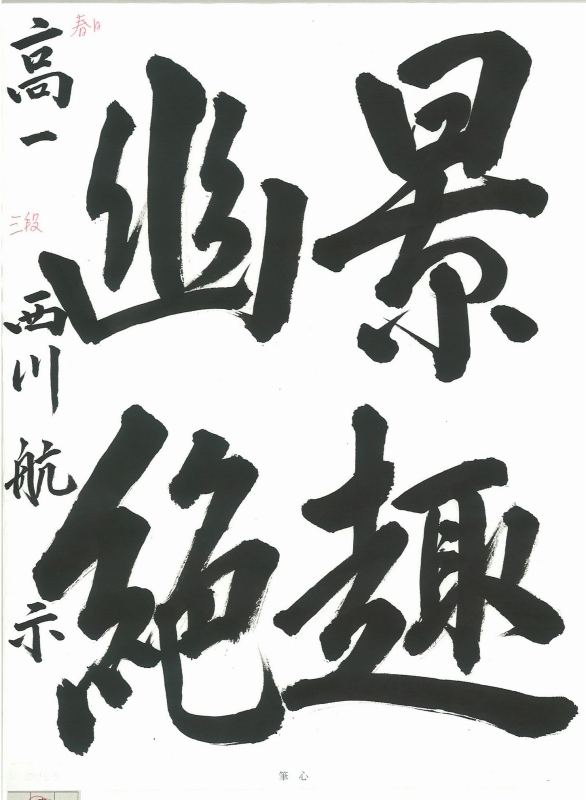 景趣
幽絶
高一 三段 西川航示
春日
心筆